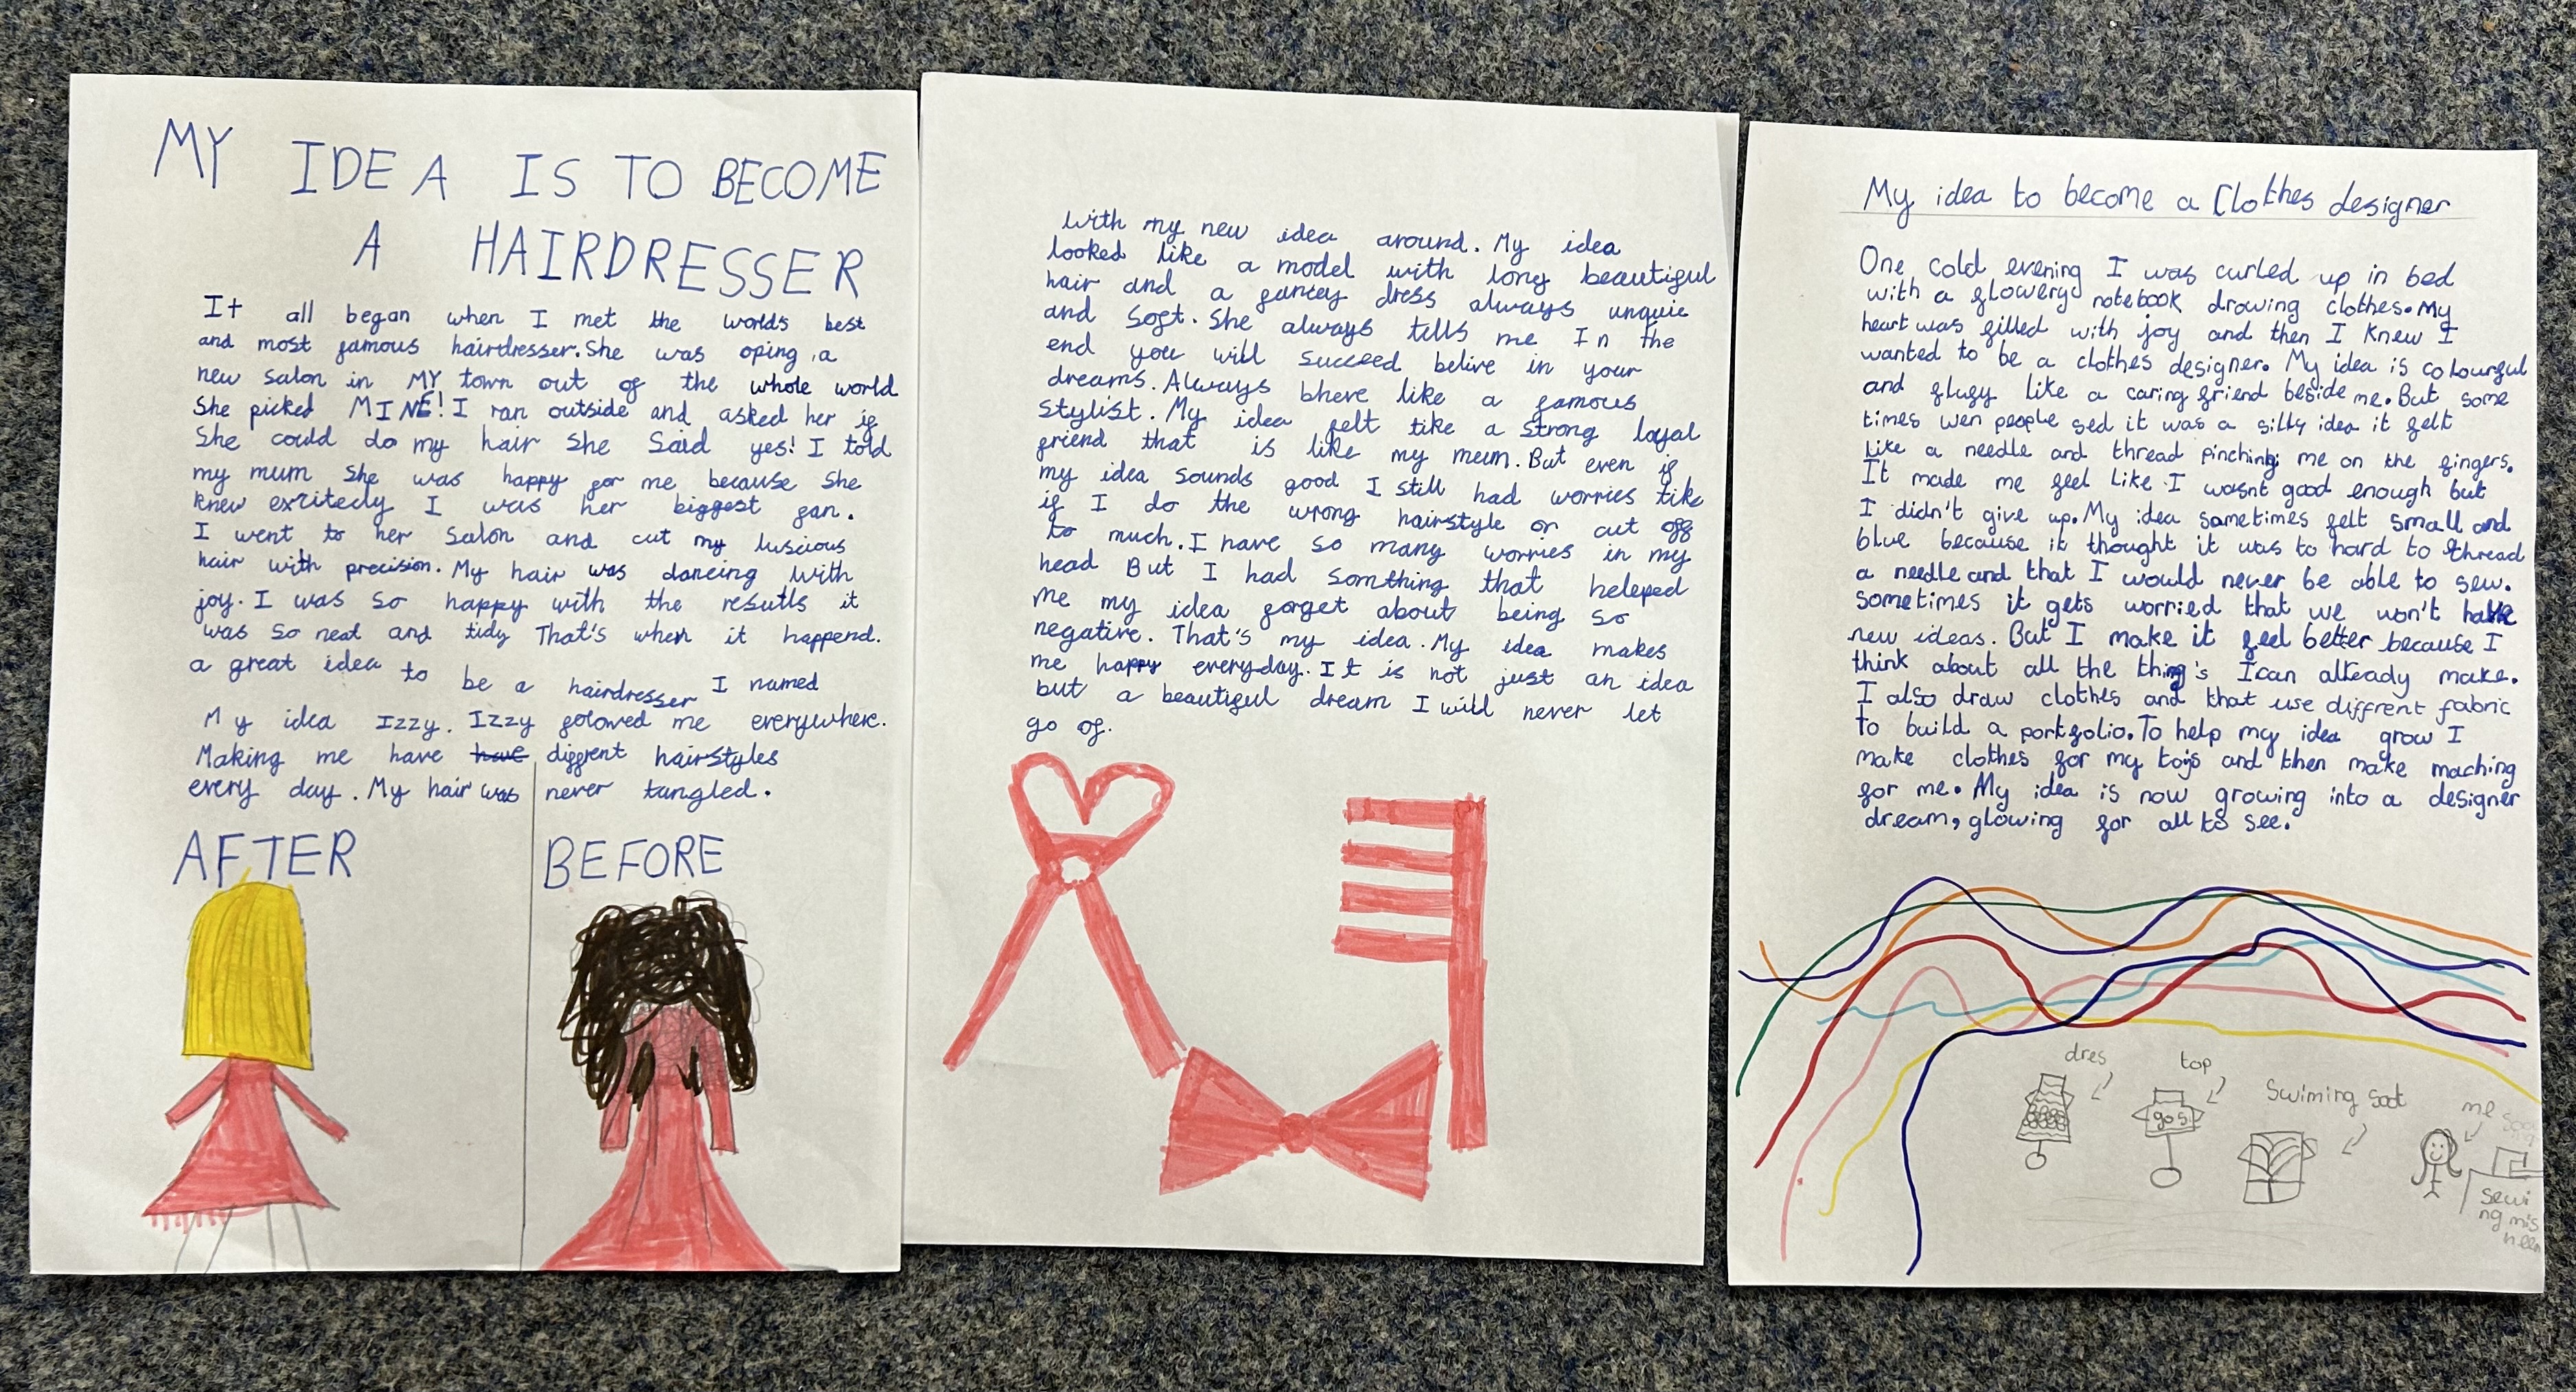 MY IDEA IS TO BECOME
A HAIRDRESSER
It all began when I met the worlds best
and most famous hairdresser. She was oping a
new salon in MY town out of the whole world
She picked MINE! I ran outside and asked her if
She could do my hair she Said yes! I told
my mum She was happy for me because She
knew exritecly I was her biggest fan.
I went to her Salon and cut my luscious
hair with precision. My hair was dancing with
joy. I was so happy with the resutls it
was So neat and tidy That's when it happend.
a great idea to be a hairdresser I named
My idea Izzy. Izzy folowed me everywhere.
Making me have have diffrent hairstyles
every day. My hair was never tangled.
AFTER
BEFORE
with my new idea around. My idea
looked like a model with long beautiful
hair and a fancey dress always unquie
and Soft. She always tells me In the
end you will succeed belive in your
dreams. Always bheve like a famous
stylist. My idea felt like a strong loyal
friend that is like my mum. But even if
my idea sounds good I still had worries like
if I do the wrong hairstyle or cut off
to much. I have so many worries in my
head But I had somthing that heleped
me my idea forget about being so
negative. That's my idea. My idea makes
me happy everyday. It is not just an idea
but a beautiful dream I will never let
go of.
My idea to become a Clothes designer
One cold evening I was curled up in bed
with a flowery notebook drawing clothes. My
heart was filled with joy and then I knew I
wanted to be a clothes designer. My idea is colourful
and flufy like a caring friend beside me. But some
times wen people sed it was a silly idea it felt
like a needle and thread pinching me on the fingers.
It made me feel like I wasnt good enough but
I didn't give up. My idea sometimes felt small and
blue because it thought it was to hard to thread
a needle and that I would never be able to sew.
sometimes it gets worried that we won't have
new ideas. But I make it feel better because I
think about all the thing's I can already make.
I also draw clothes and that use diffrent fabric
to build a portfolio. To help my idea grow I
make clothes for my toys and then make maching
for me. My idea is now growing into a designer
dream, glowing for all to see.
dres
top
Swiming soot
me
gos
sewi
ng mis